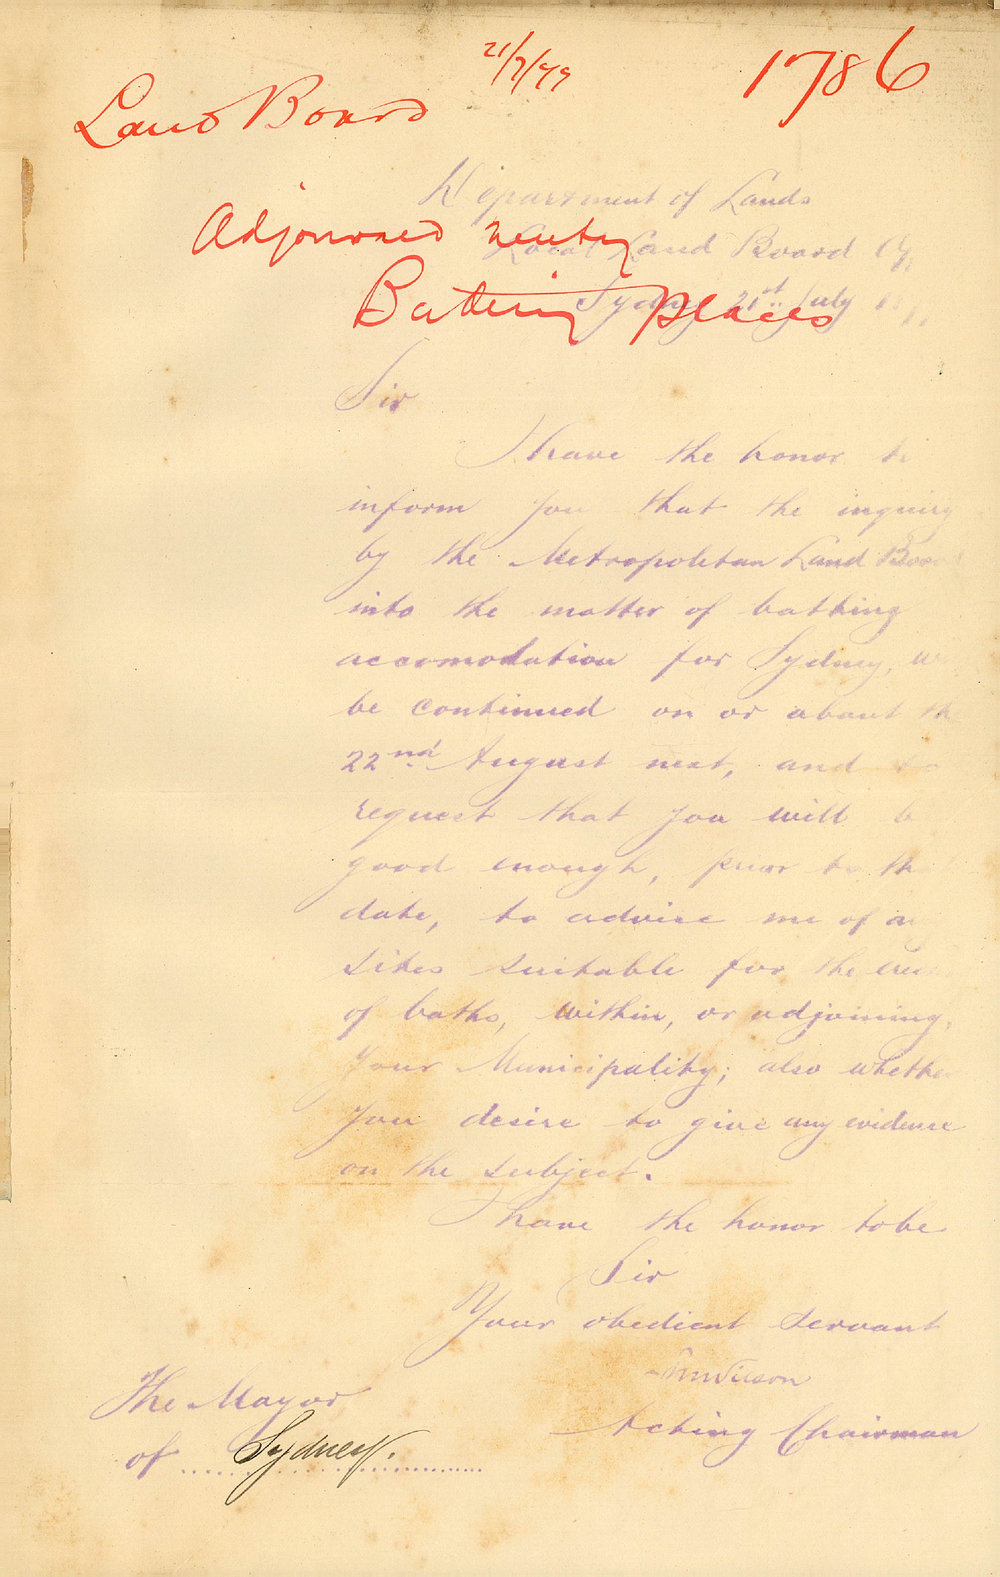 21/7/99
1786
Land Board
Department of Lands
Adjourned
Local Land Board
Bathing Places
Sydney 21st July
Sir
I have the honor to
inform you that the inquiry
by the Metropolitan Land Board
into the matter of bathing
accomodation for Sydney,
be continued on or about the
22nd August next, and to
request that you will b
good enough, prior to th
date, to advise me of
sites suitable for the
of baths, within, or adjoining,
Your Municipality; also whether
you desire to give any evidence
on the subject.
I have the honor to be
Sir
Your obedient servant
Acting Chairman
The Mayor
of Sydney.